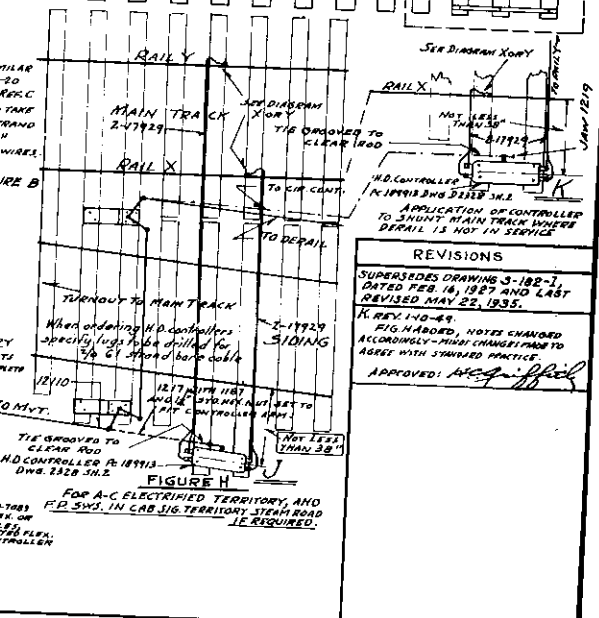 MILAR
-20
REF. C
TAKE
TRAND
H
WIRES.
URE B
RAIL Y
MAIN TRACK
2-17929
SEE DIAGRAM
X OR Y
TIE GROOVED TO
CLEAR ROD
RAIL X
TO CIR. CONT.
TO DERAIL
TURNOUT TO MAIN TRACK
When ordering H.D. controllers
specify lugs to be drilled for
2/0 61 strand bare cable
2-17929
SIDING
12110
1217 WITH 1167
AND 1½" STD. HEX. NUT SET TO
FIT CONTROLLER ARM.
TO MVT.
TIE GROOVED TO
CLEAR ROD
H.D. CONTROLLER Pc 189913
DWG. 2328 SH. 2
NOT LESS
THAN 38"
J
FIGURE H
FOR A-C ELECTRIFIED TERRITORY, AND
F.P. SWS. IN CAB SIG. TERRITORY STEAM ROAD
IF REQUIRED.
-7089
EX. OR
LES,
TED FLEX.
TROLLER
SEE DIAGRAM X OR Y
TO RAIL Y
RAIL X
NOT LESS
THAN 38"
2-17929
JAW 1219
H.D. CONTROLLER
Pc 189913 DWG D2328 SH. 2
K
APPLICATION OF CONTROLLER
TO SHUNT MAIN TRACK WHERE
DERAIL IS NOT IN SERVICE
REVISIONS
SUPERSEDES DRAWING S-182-I,
DATED FEB. 16, 1927 AND LAST
REVISED MAY 22, 1935.
K. REV. 1-10-49.
FIG. H ADDED, NOTES CHANGED
ACCORDINGLY - MINOR CHANGES MADE TO
AGREE WITH STANDARD PRACTICE.
APPROVED: